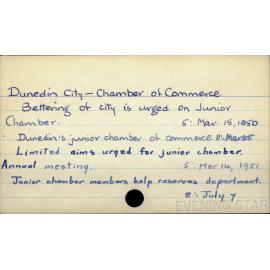 Dunedin City - Chamber of Commerce
Bettering of city is urged on Junior
Chamber. 5: Mar. 15, 1950
Dunedin's junior chamber of commerce
Limited aims urged for junior chamber.
Annual meeting. 5: Mar 14, 1951
Junior chamber members help reserves department.
8: July 7
EVENING STAR